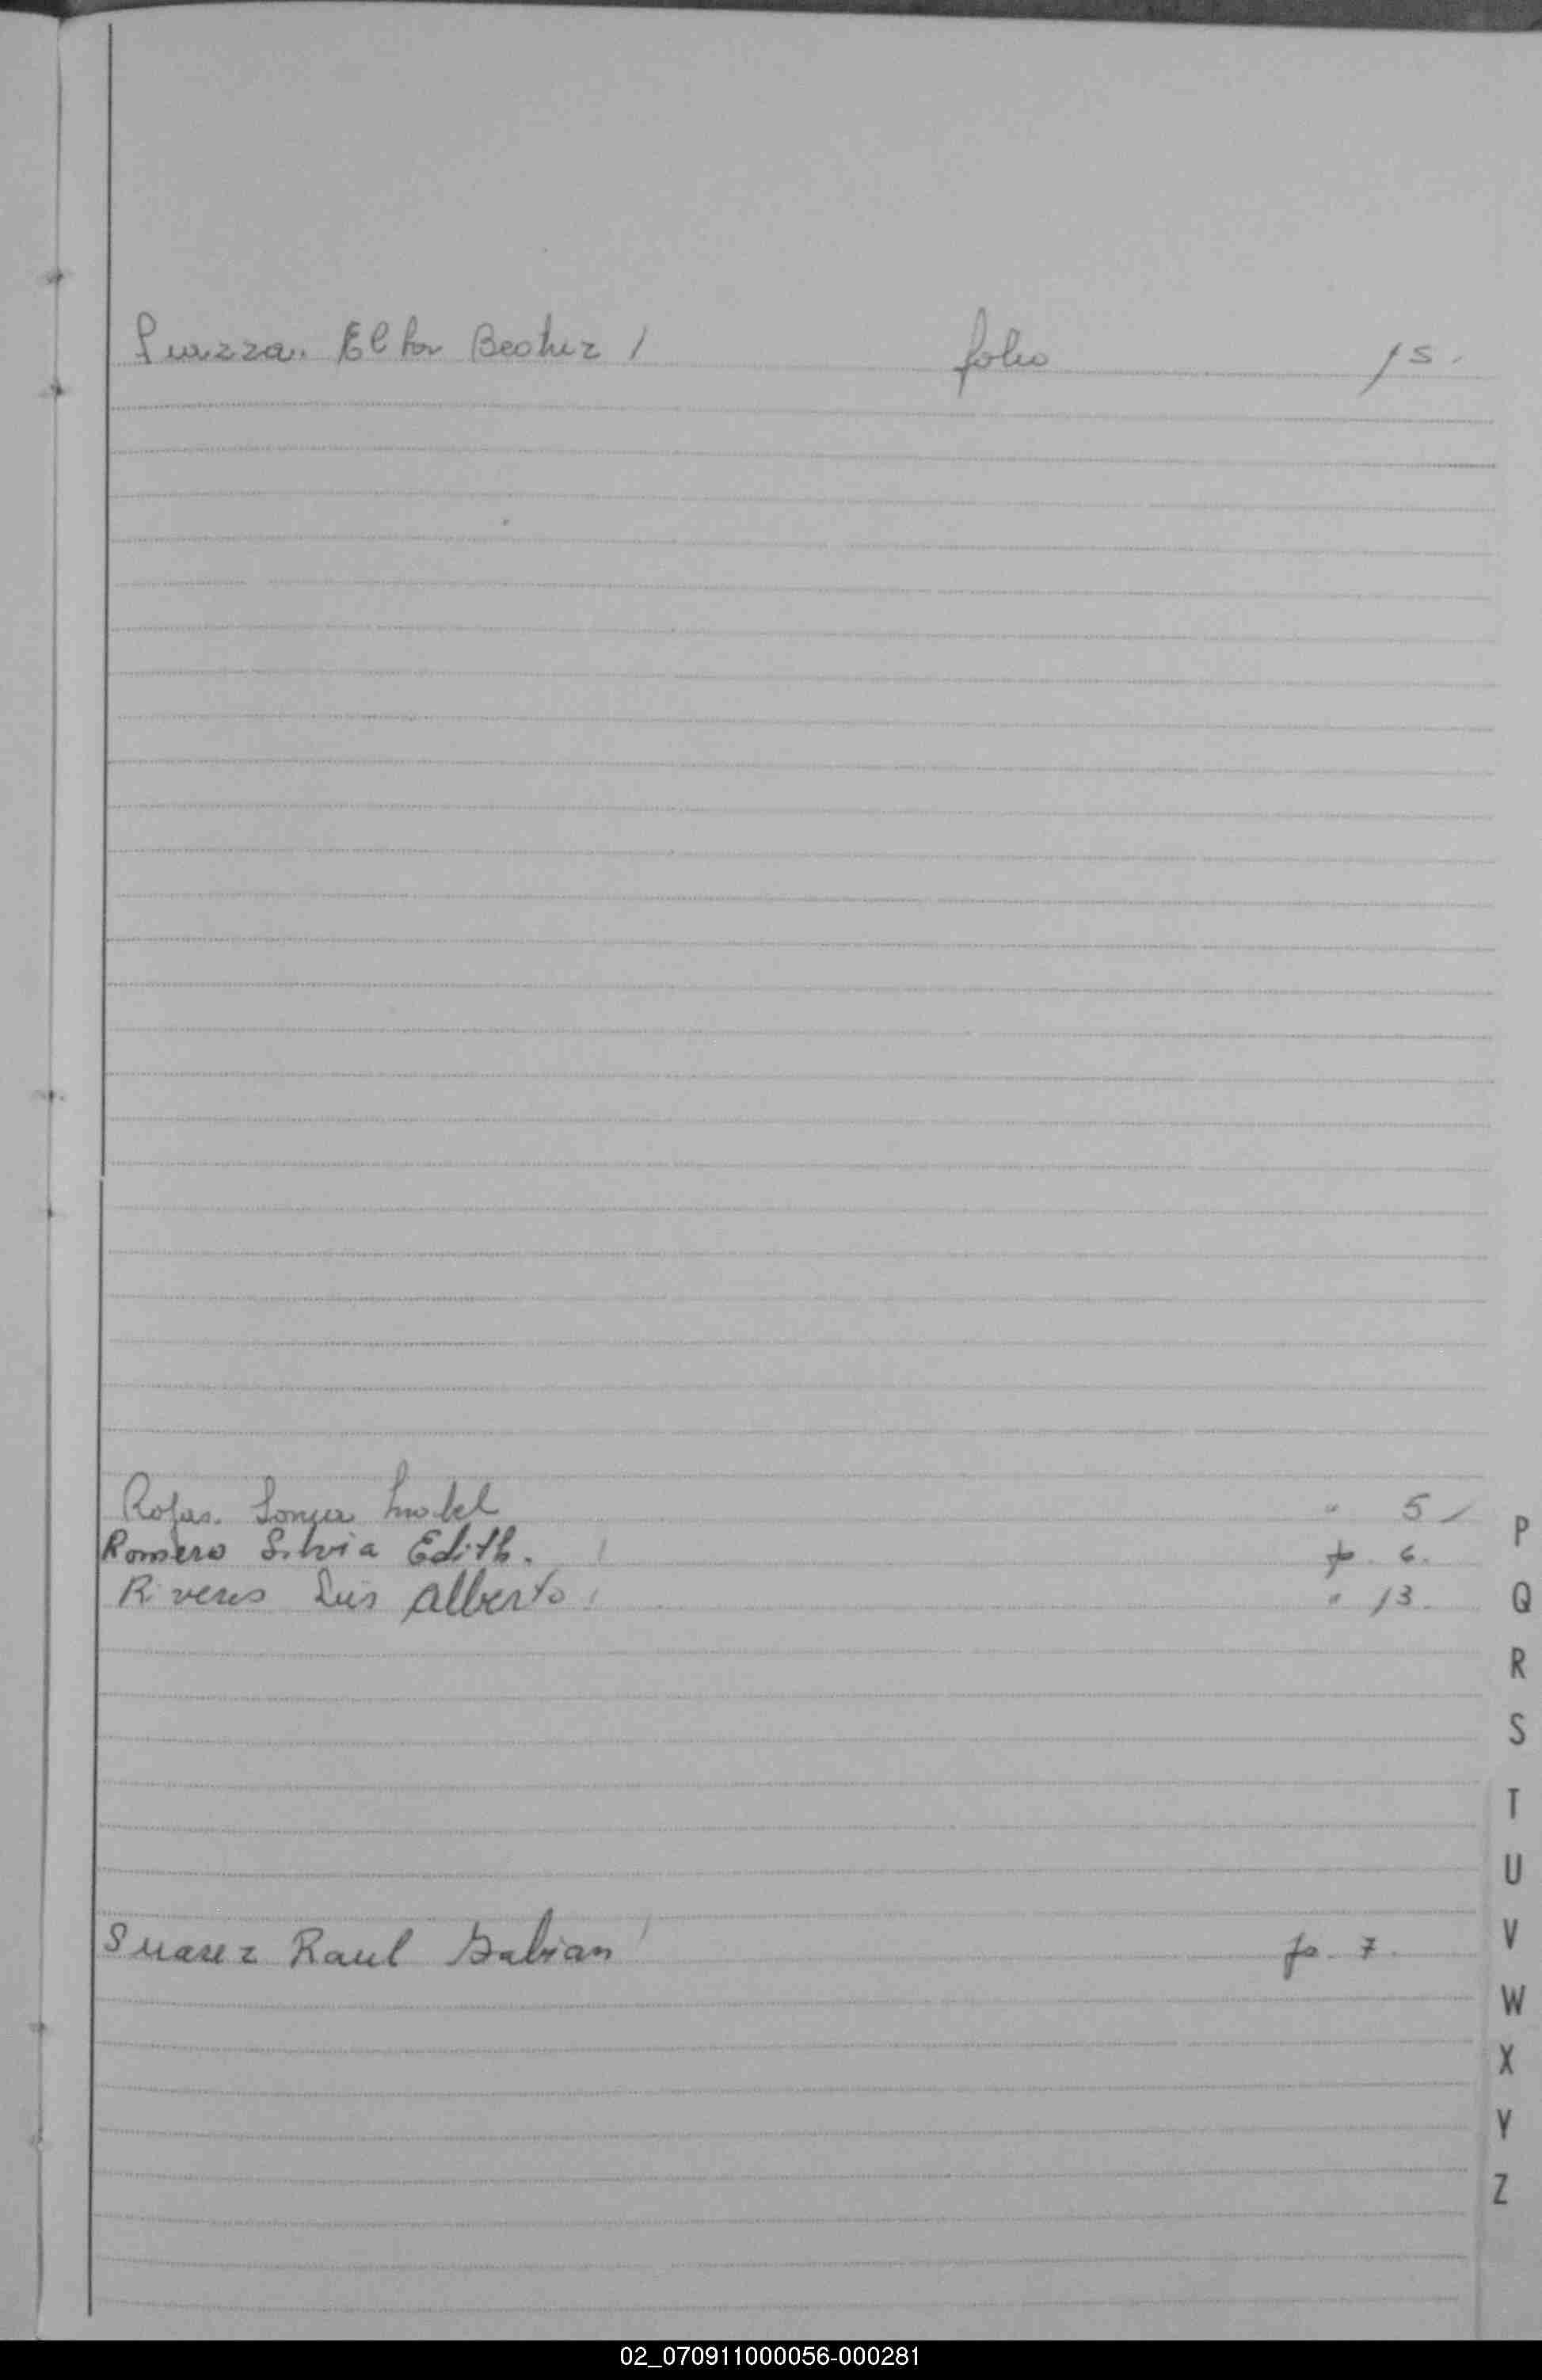 Beatriz / folio 15.
Rojas. Sonia " 5 /
Romero Silvia Edith. / fo. 6.
Riveros Luis Alberto / " 13.
Suarez Raul Fabian / fo. 7.
P
Q
R
S
T
U
V
W
X
Y
Z
02_070911000056-000281